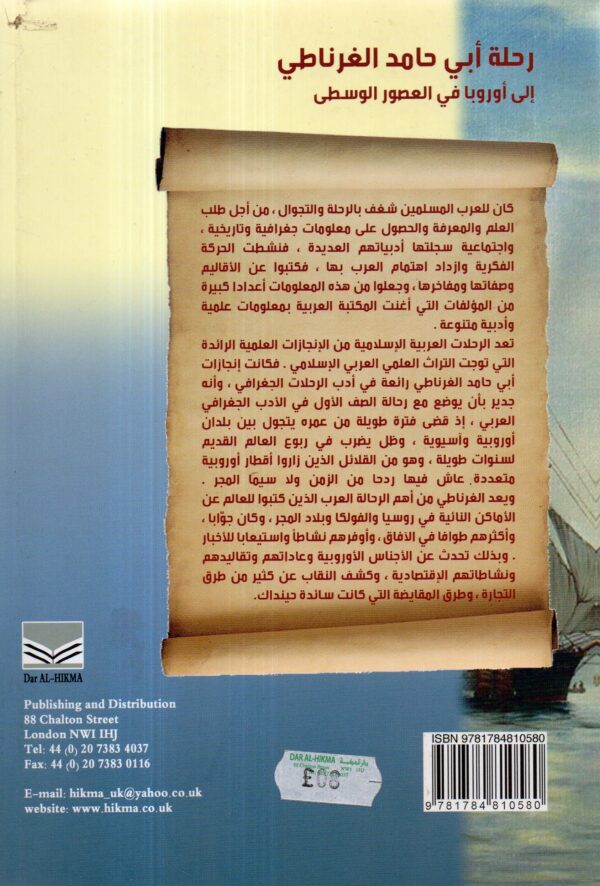 رحلة أبي حامد الغرناطي
إلى أوروبا في العصور الوسطى
كان للعرب المسلمين شغف بالرحلة والتجوال ، من أجل طلب
العلم والمعرفة والحصول على معلومات جغرافية وتاريخية ،
واجتماعية سجلتها أدبياتهم العديدة ، فنشطت الحركة
الفكرية وازداد اهتمام العرب بها ، فكتبوا عن الأقاليم
وصفاتها ومفاخرها ، وجعلوا من هذه المعلومات أعدادا كبيرة
من المؤلفات التي أغنت المكتبة العربية بمعلومات علمية
وأدبية متنوعة .
تعد الرحلات العربية الإسلامية من الإنجازات العلمية الرائدة
التي توجت التراث العلمي العربي الإسلامي . فكانت إنجازات
أبي حامد الغرناطي رائعة في أدب الرحلات الجغرافي ، وأنه
جدير بأن يوضع مع رحالة الصف الأول في الأدب الجغرافي
العربي ، إذ قضى فترة طويلة من عمره يتجول بين بلدان
أوروبية وأسيوية ، وظل يضرب في ربوع العالم القديم
لسنوات طويلة ، وهو من القلائل الذين زاروا أقطار أوروبية
متعددة عاش فيها ردحا من الزمن ولا سيمًا المجر .
ويعد الغرناطي من أهم الرحالة العرب الذين كتبوا للعالم عن
الأماكن النائية في روسيا والفولكا وبلاد المجر ، وكان جوّابا ،
وأكثرهم طوافا في الآفاق ، وأوفرهم نشاطاً واستيعابا للأخبار
. وبذلك تحدث عن الأجناس الأوروبية وعاداتهم وتقاليدهم
ونشاطاتهم الإقتصادية ، وكشف النقاب عن كثير من طرق
التجارة ، وطرق المقايضة التي كانت سائدة حينداك.
Dar AL-HIKMA
Publishing and Distribution
88 Chalton Street
London NWI IHJ
Tel: 44 (0) 20 7383 4037
Fax: 44 (0) 20 7383 0116
E-mail: hikma_uk@yahoo.co.uk
website: www.hikma.co.uk
DAR AL-HIKMA دار الحكمة
88 Chalton Street NW1
£08
ISBN 9781784810580
9 781784 810580